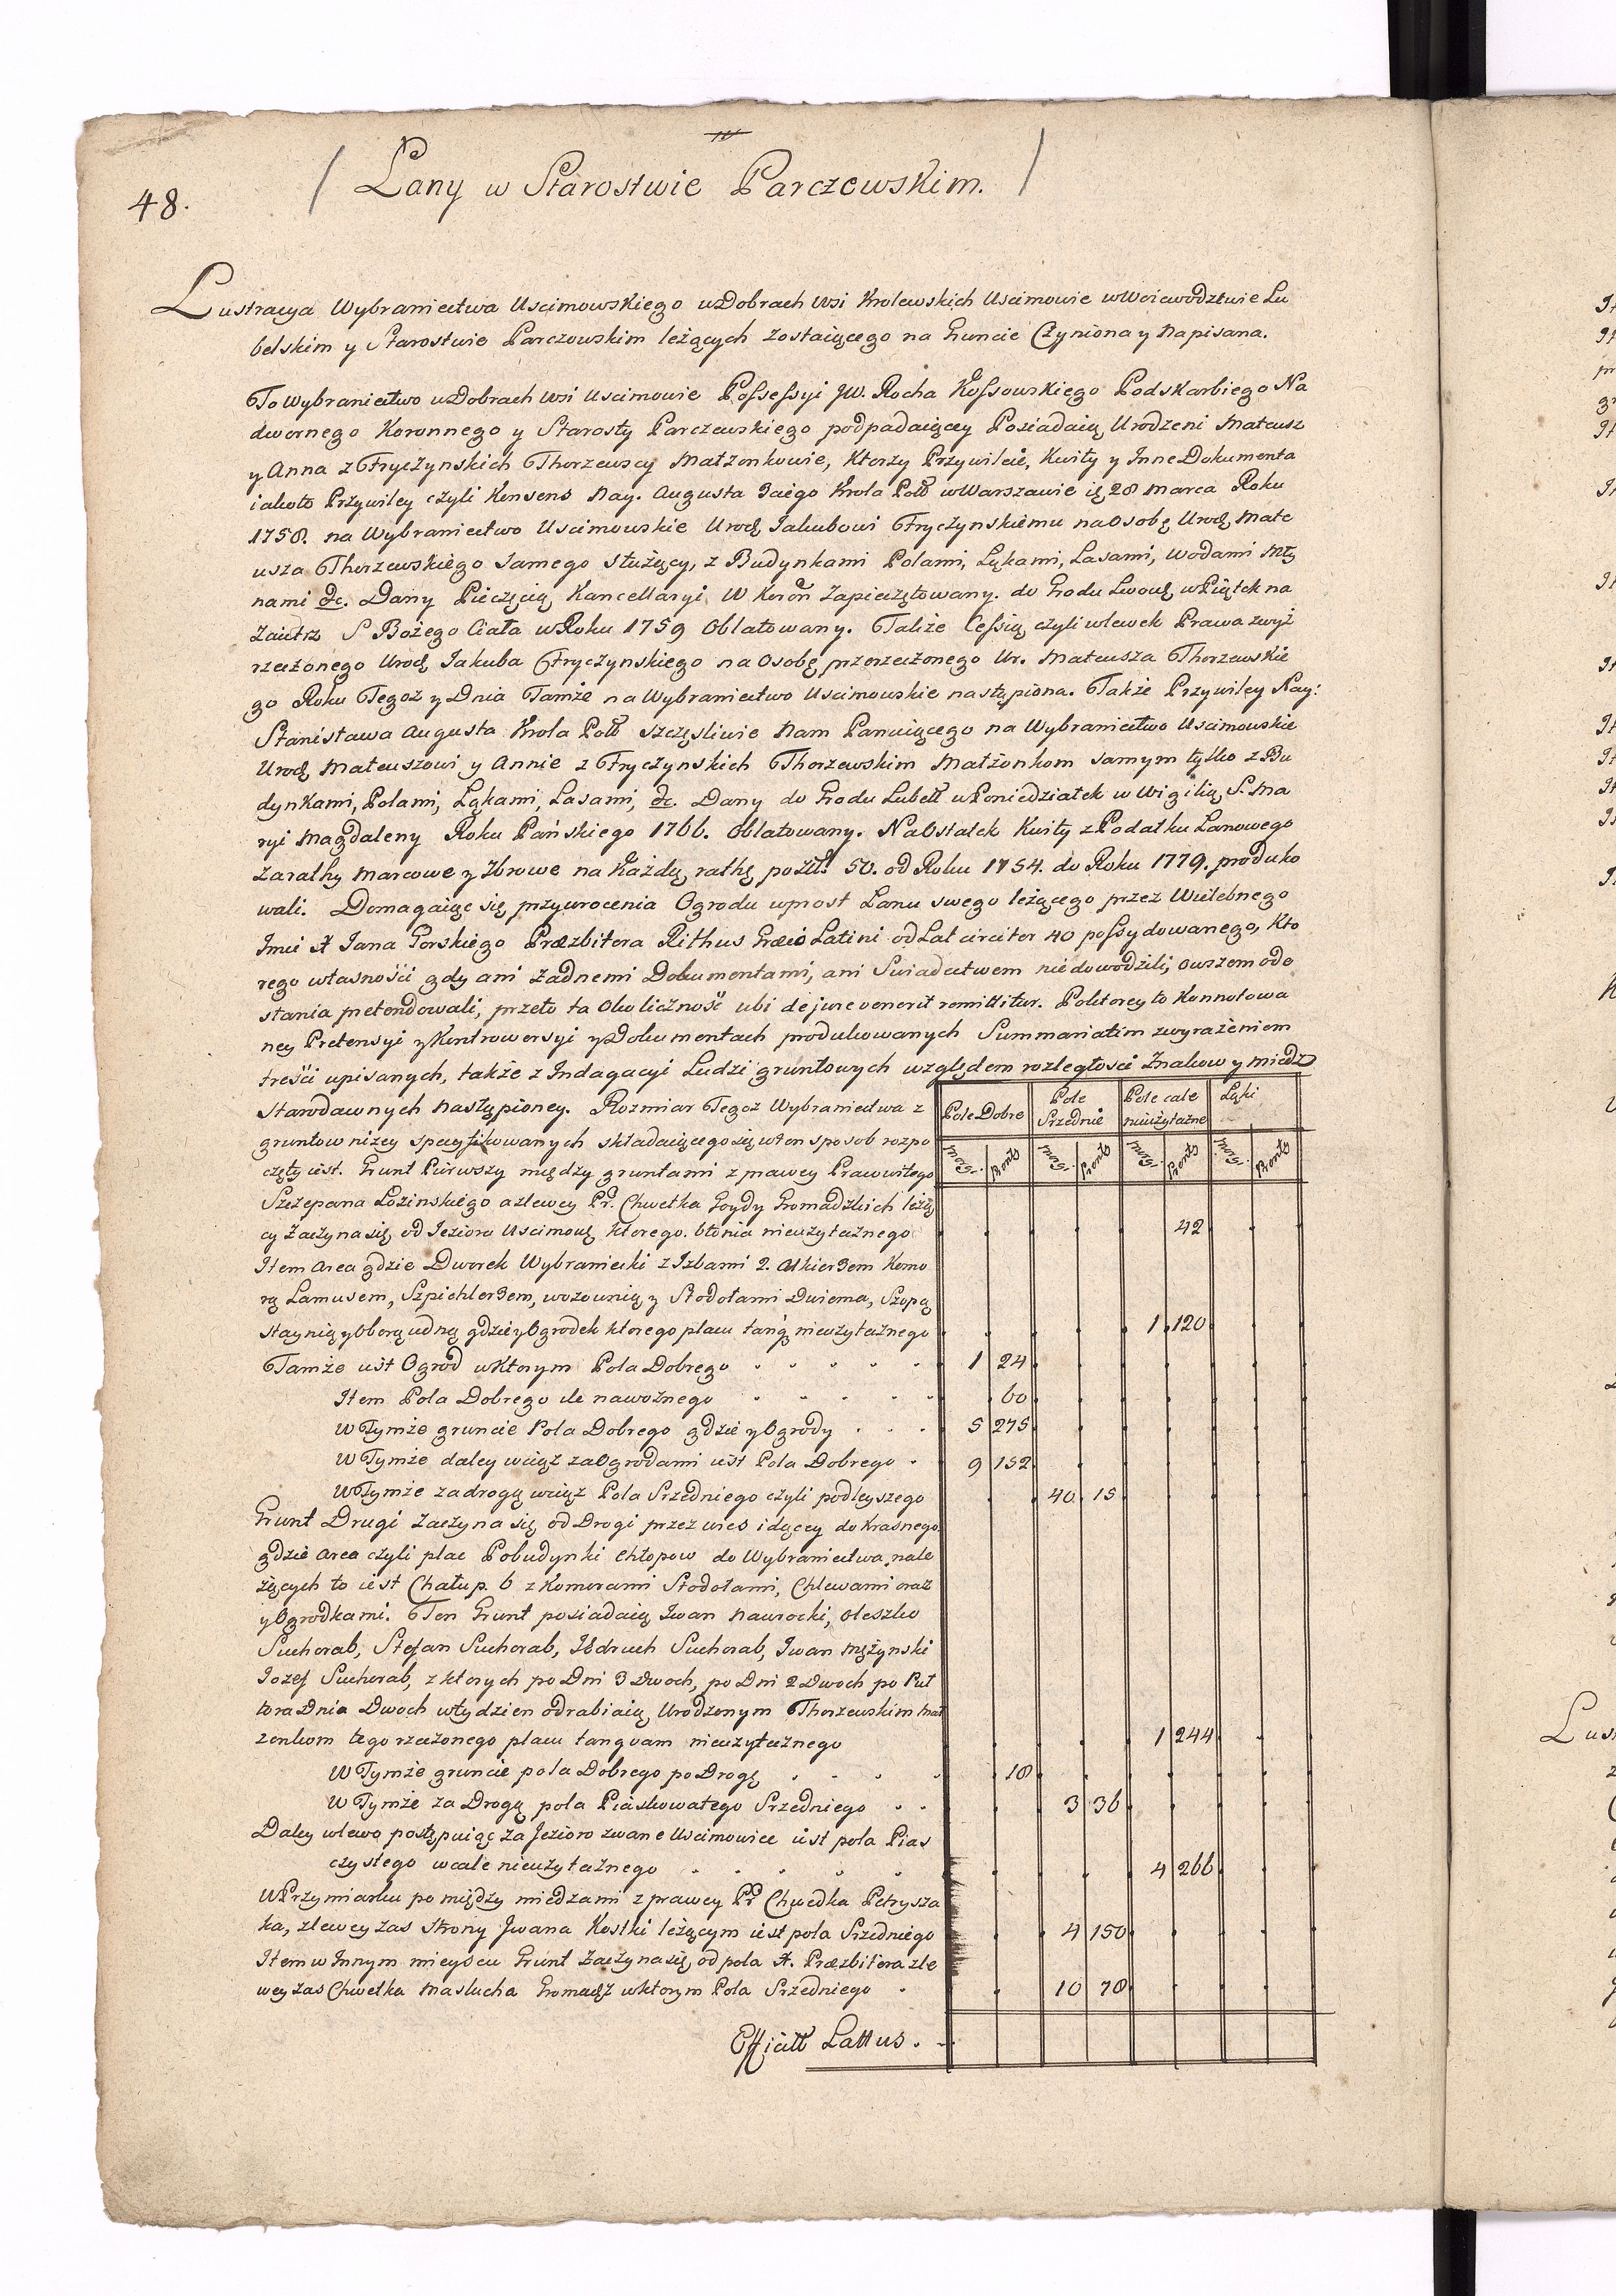 48.
Lany w Starostwie Parczewskim.
Lustracya Wybraniectwa Uscimowskiego wDobrach Wsi Krolewskich Uscimowie wWoiewodztwie Lu
belskim y Starostwie Parczowskim leżących zostaiącego na Gruncie Czyniona y Napisana.
To wybraniectwo wDobrach wsi Uscimowie Possessyi JW. Rocha Kossowskiego Podskarbiego Na
dwornego Koronnego y Starosty Parczewskiego podpadaiącey Posiadaią Urodzeni Mateusz
y Anna z Fryczynskich Thorzewscy Małżonkowie, Ktorzy Przywileie, Kwity y Inne Dokumenta
iakoto Przywiley czyli Konsens Nay. Augusta 3ciego Krola Poll wWarszawie 28 Marca Roku
1758. na Wybraniectwo Uscimowskie Urod Jakubowi Fryczynskiemu naOsobę Urod Mate
usza Thorzewskiego samego służący, z Budynkami Polami, Łąkami, Lasami, wodami Mły
nami &c. Dany Pieczęcią Kancellaryi W Koron Zapieczętowany. do Grodu wPiątek na
zaiutrz S Bożego Ciała wRoku 1759 Oblatowany. Takze Cessią czyli wlewek Prawa zwyż
rzeczonego Urod Jakuba Fryczynskiego na Osobę przerzeczonego Ur. Mateusza Thorzewskie
go Roku Tegoż y Dnia Tamże na Wybraniectwo Uscimowskie nastąpiona. Także Przywiley Nay:
Stanisława Augusta Krola Poll szczęsliwie Nam Panuiącego na Wybraniectwo Uscimowskie
Urod Mateuszowi y Annie z Fryczynskich Thorzewskim Małżonkom samym tylko z Bu
dynkami, Polami, Łąkami, Lasami, &c. Dany do Grodu Lubell wPoniedziałek w Wigilią S. Ma
ryi Magdaleny Roku Pańskiego 1766. Oblatowany. NaOstatek Kwity z Podatku Lanowego
zarathy Marcowe y 7browe na Każdą rathę po Zł. 50. od Roku 1754. do Roku 1779. produko
wali. Domagaiąc się przywrocenia Ogrodu wprost Lanu swego leżącego przez Wielebnego
Imci X Jana Gorskiego Præzbitera Rithus Græco Latini od Lat circiter 40 possydowanego, Kto
rego własności gdy ani żadnemi Dokumentami, ani Swiadectwem niedowodzili, owszem odo
stania pretendowali, przeto ta Okoliczność ubi de jure venerit remittitur. Poktorey to Konnotowa
ney Pretensyi y Kontrowersyi y Dokumentach produkowanych Summariatim zwyrażeniem
treści wpisanych, także z Indagacyi Ludzi gruntowych względem rozległosci Znakow y miedz
Starodawnych nastąpioney. Rozmiar Tegoz Wybraniectwa z
gruntow niżey specyfikowanych składaiącego się wten sposob rozpo
częty iest. Grunt Pierwszy między gruntami z prawey Prawowitego
Szczepana Lozinskiego a zlewey Pr. Chwetka Goydy Gromadzkich leżą
cy Zaczyna się od Jeziora Uscimow ktorego. błonia nieużytecznego
Item Area gdzie Dworek Wybraniecki z Izbami 2. Alkierzem Komo
rą Lamusem, Szpichlerzem, wozownią y Stodołami Dwiema, Szopą
Staynią y Oborą iedną gdzie y Ogrodek ktorego placu tanq nieużytecznego
Tamże iest Ogrod wktorym Pola Dobrego
Item Pola Dobrego ile nawoznego
W Tymże gruncie Pola Dobrego gdzie y Ogrody
W Tymże daley wciąż za Ogrodami iest Pola Dobrego
WTymże za drogą wciąż Pola Srzedniego czyli podleyszego
Grunt Drugi Zaczyna się od Drogi przez wies idącey do Krasnego
gdzie Area czyli plac Pobudynki chłopow do Wybraniectwa nale
żących to iest Chałup. 6 z Komorami Stodołami, Chlewami oraz
y Ogrodkami. Ten Grunt posiadaią Iwan Nawrocki, Oleszko
Suchorab, Stefan Suchorab, Jedruch Suchorab, Iwan Mężynski
Jozef Suchorab, z ktorych po Dni 3 Dwoch, po Dni 2 Dwoch po Puł
tora Dnia Dwoch wtydzien odrabiaią Urodzonym Thorzewskim Mał
zonkom tego rzeczonego placu tanquam nieużytecznego
W Tymże gruncie pola Dobrego po Drogę
W Tymże za Drogą pola Piaskowatego Srzedniego
Daley wlewo postępuiąc za Jezioro zwane Uscimowice iest pola Pias
czystego wcale nieużytecznego
WPrzymiarku po między miedzami z prawey Pr Chwedka Petrysza
ka, zlewey zas Strony Jwana Kostki leżącym iest pola Srzedniego
Item w Innym mieyscu Grunt zaczyna się od pola X. Præzbitera zle
wey zas Chwetka Maslucha Gromadz wktorym Pola Srzedniego
Pole Dobre | Pole Srzednie | Pole cale nieużyteczne | Łąki
Morgi | Pronty | Morgi | Pronty | Morgi | Pronty | Morgi | Pronty
42
1 120
1 24
60
5 275
9 152
40 15
1 244
18
3 36
4 266
4 150
10 78
Lattus.